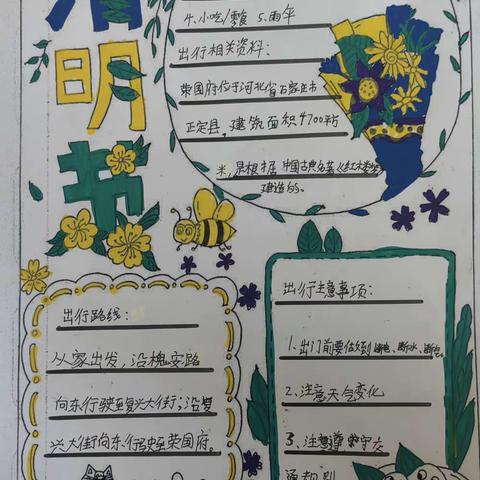 清
明
节
4、小吃/零食 5、雨伞
出行相关资料：
荣国府位于河北省石家庄市
正定县，建筑面积4700平方
米，是根据中国古典名著《红楼梦》
建造的。
出行路线：
从家出发，沿槐安路
向东行驶至复兴大街；沿复
兴大街向东行驶至荣国府。
出行注意事项：
1、出门前要做到断电、断水、断气。
2、注意天气变化
3、注意遵守交
通规则